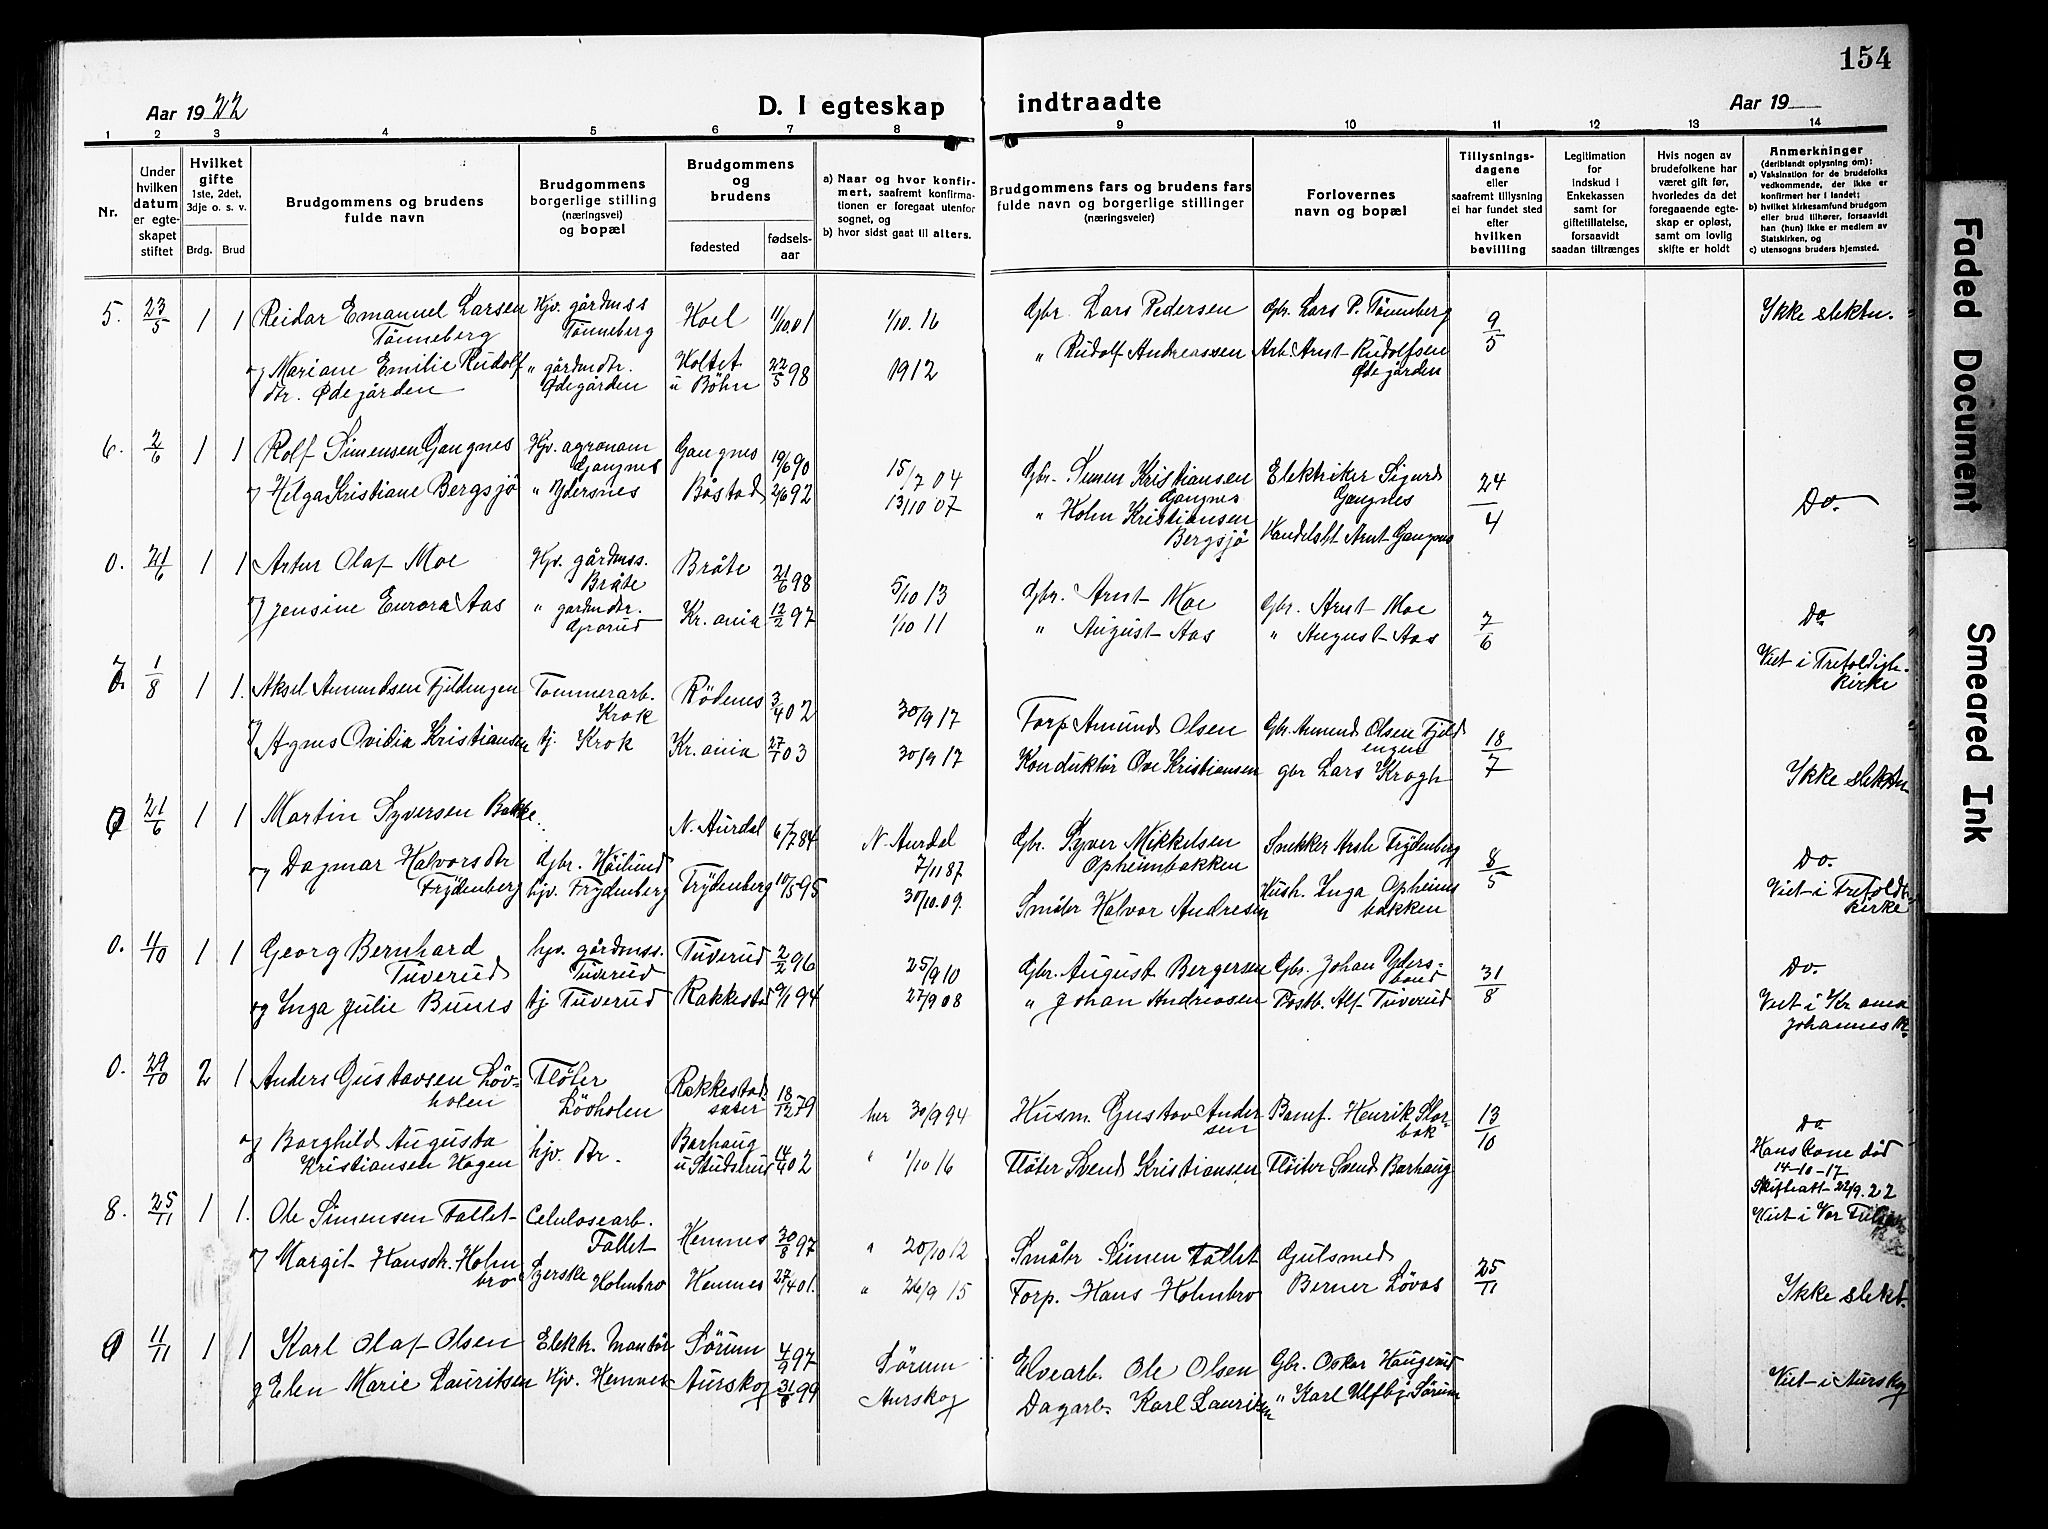 154
Aar 1922
D. I egteskap
indtraadte
Aar 19
1 2 3 4 5 6 7 8 9 10 11 12 13 14
Nr.
Under hvilken datum er egteskapet stiftet
Hvilket gifte 1ste, 2det, 3dje o. s. v.
Brdg. Brud
Brudgommens og brudens fulde navn
Brudgommens borgerlige stilling (næringsvei) og bopæl
Brudgommens og brudens
fødested
fødselsaar
a) Naar og hvor konfirmert, saafremt konfirmationen er foregaat utenfor sognet, og
b) hvor sidst gaat til alters.
Brudgommens fars og brudens fars fulde navn og borgerlige stillinger (næringsveier)
Forlovernes navn og bopæl
Tillysningsdagene eller saafremt tillysning ei har fundet sted efter hvilken bevilling
Legitimation for indskud i Enkekassen samt for giftetillatelse, forsaavidt saadan tiltrænges
Hvis nogen av brudefolkene har været gift før, hvorledes da det foregaaende egteskap er opløst, samt om lovlig skifte er holdt
Anmerkninger (deriblandt oplysning om):
a) Vaksination for de brudefolks vedkommende, der ikke er konfirmert her i landet;
b) hvilket kirkesamfund brudgom eller brud tilhører, forsaavidt han (hun) ikke er medlem av Statskirken, og
c) utensogns bruders hjemsted.
5. 23/5 1 1 Reidar Emanuel Larsen Tønneberg Hjv. gårdmss Tønneberg Hoel 11/10.01 1/10.16 Gbr. Lars Pedersen Gbr. Lars P. Tønneberg 9/5 Ikke slektn.
og Mariane Emilie Rudolfdtr. Ødegården " gårdmdtr. Ødegården Holtet u Böhn 22/5 98 1912 " Rudolf Andreassen Arb. Arnt Rudolfsen Ødegården
6. 2/6 1 1 Rolf Simensen Gangnes Hjv. agronom Gangnes Gangnes 19/6 90 15/7 04 Gbr. Simen Kristiansen Gangnes Elektriker Sigurd Gangnes 24/4 Do.
og Helga Kristiane Bergsjø " Ydersnes Båstad 2/6 92 13/10 07 " Holm Kristiansen Bergsjö Handelsbt. Arnt Gangnes
0. 21/6 1 1 Artur Olaf Moe Hjv. gårdmss. Bråte Bråte 21/6 98 5/10 13 Gbr. Arnt Moe Gbr. Arnt Moe 7/6 Do
og Jensine Eurora Aas " gårdmdtr. Grorud Kr.ania 12/2 97 1/10 11 " August Aas " August Aas Viet i Trefoldigh. kirke
7. 1/8 1 1. Aksel Amundsen Fjeldengen Tømmerarb. Krok Rödenes 3/4 02 30/9 17 Forp. Amund Olsen Gbr. Amund Olsen Fjeldengen 18/7
og Agnes Ovidia Kristiansen tj. Krok Kr.ania 27/1 03 30/9 17 Konduktör Ove Kristiansen gbr Lars Krogh Ikke slektn
0 21/6 1 1 Martin Syversen Bakke N. Aurdal 6/7 84 N. Aurdal 7/11 87 Gbr. Syver Mikkelsen Opheimbakken Snekker Frydenberg 8/5 Do.
og Dagmar Halvorsdtr Frydenberg Gbr. Höilund hjv. Frydenberg Frydenberg 10/5 95 30/10.09. Småbr Halvor Andresen Hush. Inga Opheimsbakken Viet i Trefoldh. kirke
0. 4/10 1 1 Georg Bernhard Tuverud hjv. gårdmss. Tuverud Tuverud 2/2 96 25/9 10 Gbr. August Bergersen Gbr. Johan Ydersbond 31/8 Do.
og Inga Julie Buers tj Tuverud Rakkestad 9/1 94 27/9 08 " Johan Andreasen Postb. Alf Tuverud Viet i Kr ania Johannes K.
0. 29/10 2 1 Anders Gustavsen Lövholen Fløter Lövholen Rakkestad sæter 18/12 79 her 30/9 94 Husm. Gustav Andersen Banef. Henrik Storbak 13/10 Do
og Borghild Augusta Kristiansen Hagen hjv. dtr. Barhaug u Studsrud 14/4 02 " 1/10 16 Fløter Svend Kristiansen Fløiter Svend Barhaug Hans kone död 14-10-17
Skifteatt 22/9.22
8. 25/11 1 1. Ole Simensen Fallet Celulosearb. Fallet Hemnes 30/8 97 " 20/10 12 Småbr Simen Fallet Gulsmed Berner Lövås 25/11 Viet i Vor
og Margit Hansdtr. Holmbro Syerske Holmbro Hemnes 27/4 01. " 26/9 15 Forp. Hans Holmbro Ikke slekt.
0 11/11 1 1 Karl Olaf Olsen Elektr. montör Sörum 4/9 97 Sörum Elvearb. Ole Olsen Gbr. Oskar Haugerud
og Elen Marie Lauritsen Hjv. Hemnes Aurskog 31/8 99 Aurskog Dagarb. Karl Lauritsen " Karl Ulfby Sörum Viet i Aurskog
Faded Document
Smeared Ink